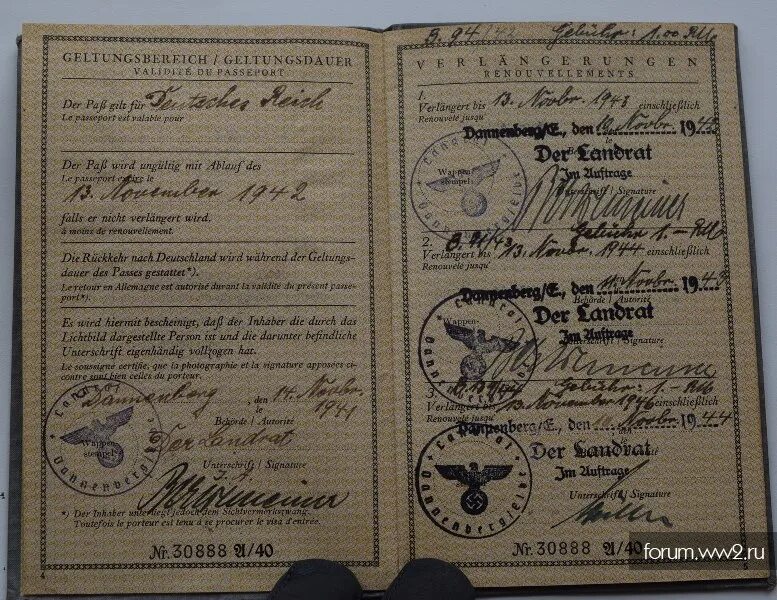 GELTUNGSBEREICH / GELTUNGSDAUER
VALIDITÉ DU PASSEPORT
Der Paß gilt für Deutsches Reich
Le passeport est valable pour
Der Paß wird ungültig mit Ablauf des
Le passeport expire le
13. November 1942
falls er nicht verlängert wird.
à moins de renouvellement.
Die Rückkehr nach Deutschland wird während der Geltungs-
dauer des Passes gestattet*).
Le retour en Allemagne est autorisé durant la validité du présent passe-
port*).
Es wird hiermit bescheinigt, daß der Inhaber die durch das
Lichtbild dargestellte Person ist und die darunter befindliche
Unterschrift eigenhändig vollzogen hat.
Le soussigné certifie, que la photographie et la signature apposées ci-
contre sont bien celles du porteur.
Dannenberg, den 14. Novbr. 1941
le
Behörde / Autorité
Der Landrat
Wappen-
stempel
Landrat
Dannenberg/Elbe
Unterschrift / Signature
*) Der Inhaber unterliegt jedoch dem Sichtvermerkszwang.
Toutefois le porteur est tenu à se procurer le visa d'entrée.
Nr. 30888 A/40
4
B. 94/42 Gebühr: 1.00 RM
VERLÄNGERUNGEN
RENOUVELLEMENTS
1.
Verlängert bis 13. Novbr. 1943 einschließlich
Renouvelé jusqu'
Dannenberg/E., den 10. Novbr. 1942
Der Landrat
Im Auftrage
Wappen-
stempel
Landrat
Dannenberg/Elbe
Unterschrift / Signature
2. Gebühr 1.- RM
Verlängert bis 13. Novbr. 1944 einschließlich
Renouvelé jusqu'
Dannenberg/E., den 11. Novbr. 1943
Behörde / Autorité
Der Landrat
Im Auftrage
Wappen-
Landrat
Dannenberg
3. Gebühr: 1.- RM
Verlängert bis 13. November 1946 einschließlich
Renouvelé jusqu'
Dannenberg/E., den Novbr. 1944
Der Landrat
Im Auftrage
Landrat
Dannenberg/Elbe
Unterschrift / Signature
Nr. 30888 A/40
5
forum.ww2.ru